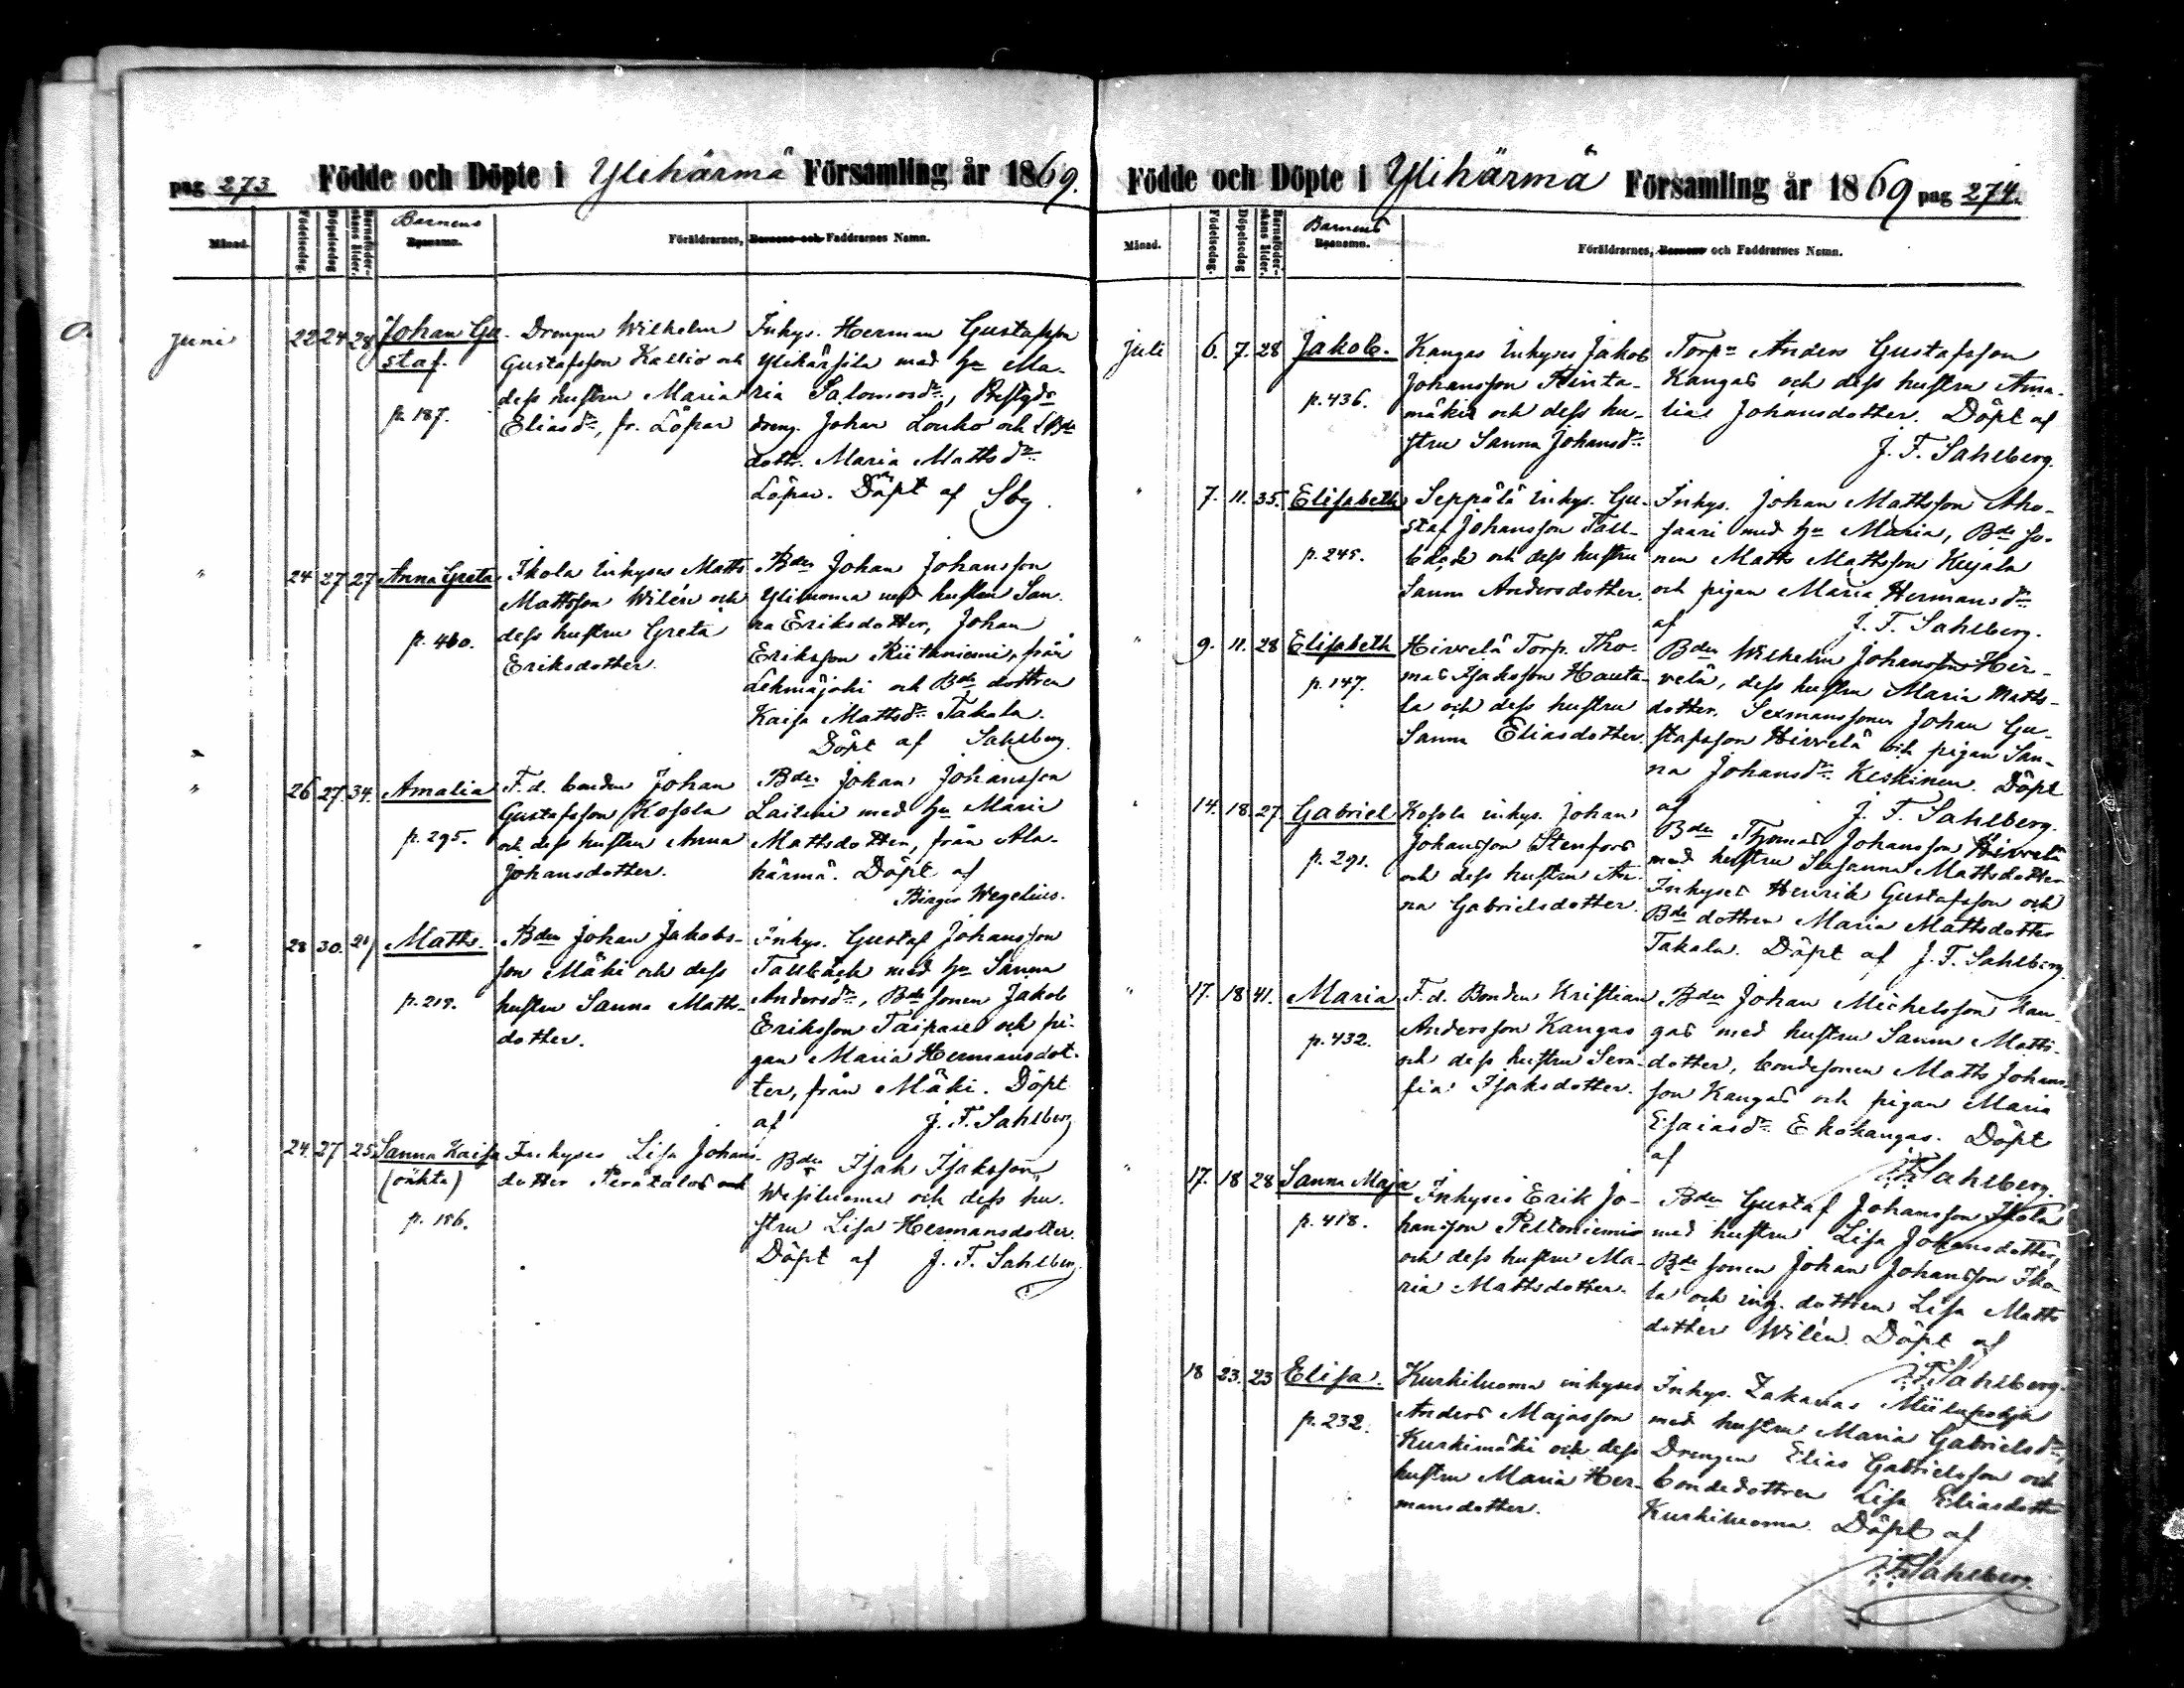 pag 273 Födde och Döpte i Ylihärmä Församling år 1869.
Månad. Födelsedag. Döpelsedag Barnaföderskans ålder. Barnens Egnanamn. Föräldrarnes, Barnens och Faddrarnes Namn.
Juni 22 24 28 Johan Gu-
staf.
p. 187.
Drengen Wilhelm
Gustafsson Kallio och
dess hustru Maria
Eliasdr, fr. Löpar
Inhys. Herman Gustafsson
Ylihärsilä med hu Ma-
ria Salomonsdr,
dreng. Johan Louko och Bde
dottr. Maria Mattsdr
Löpar. Döpt af Sbg.
" 24 27 27 Anna Greta
p. 460.
Ikola Inhyses Matts
Mattsson Wilén och
dess hustru Greta
Eriksdotter.
Bden Johan Johansson
Yliluoma med hustru San-
na Eriksdotter, Johan
Eriksson från
och Bde dottren
Kaisa Mattsdr Takala.
Döpt af Sahlberg.
" 26 27. 34. Amalia
p. 295.
F. d. bonden Johan
Gustafsson Kosola
och dess hustru Anna
Johansdotter.
Bden Johan Johansson
med hu Maria
Mattsdotter, från Ala-
härmä. Döpt af
Birger Wegelius.
" 28 30. Matts.
p. 219.
Bden Johan Jakobs-
son Mäki och dess
hustru Sanna Matts-
dotter.
Inhys. Gustaf Johansson
Tallbäck med hu Sanna
Andersdr, Bde sonen Jakob
Eriksson Taipale och pi-
gan Maria Hermansdot-
ter, från Mäki. Döpt
af J. F. Sahlberg
24. 27 25 Sanna Kaisa
(oäkta)
p. 186.
Inhyses Lisa Johans-
dotter
Bden Isak Isaksson
Wesiluoma och dess hu-
stru Lisa Hermansdotter.
Döpt af J. F. Sahlberg
Födde och Döpte i Ylihärmä Församling år 1869 pag 274.
Månad. Födelsedag. Döpelsedag Barnaföderskans ålder. Barnens Egnanamn. Föräldrarnes, Barnens och Faddrarnes Namn.
Juli 6. 7. 28 Jakob.
p. 436.
Kangas Inhyses Jakob
Johansson Hinta-
mäki och dess hu-
stru Sanna Johansdr
Torpn Anders Gustafsson
Kangas och dess hustru Ama-
lia Johansdotter. Döpt af
J. F. Sahlberg.
" 7. 11. 35. Elisabeth
p. 245.
Seppälä Inhys. Gu-
staf Johansson Tall-
bäck och dess hustru
Sanna Andersdotter.
Inhys. Johan Mattsson Aho-
saari med hu Maria, Bde so-
nen Matts Mattsson Kujala
och pigan Maria Hermansdr
af J. F. Sahlberg.
" 9. 11. 28 Elisabeth
p. 147.
Hirvelä Torp. Tho-
mas Isaksson Hauta-
la och dess hustru
Sanna Eliasdotter.
Bden Wilhelm Johansson Hir-
velä, dess hustru Maria Matts-
dotter. Sexmanssonen Johan Gu-
stafsson Hirvelä och pigan San-
na Johansdr Keskinen. Döpt
af J. F. Sahlberg.
" 14. 18. 27 Gabriel
p. 291.
Kosola inhys. Johan
Johansson Stenfors
och dess hustru An-
na Gabrielsdotter.
Bden Thomas Johansson Hirvelä
med hustru Susanna Mattsdotter
Inhyses Henrik Gustafsson och
Bde dottren Maria Mattsdotter
Takala. Döpt af J. F. Sahlberg.
" 17. 18 41. Maria
p. 432.
F. d. Bonden Kristian
Andersson Kangas
och dess hustru Sera-
fia Isaksdotter.
Bden Johan Michelsson Kan-
gas med hustru Sanna Matts-
dotter, bondesonen Matts Johans-
son Kangas och pigan Maria
Esaiasdr Ekokangas. Döpt
af J. F. Sahlberg.
" 17. 18 28 Sanna Maja
p. 418.
Inhyses Erik Jo-
hansson Peltoniemi
och dess hustru Ma-
ria Mattsdotter.
Bden Gustaf Johansson Ikola
med hustru Lisa Johansdotter,
Bde sonen Johan Johansson Iko-
la och inh. dottren Lisa Matts
dotter Wilén. Döpt af
J. F. Sahlberg.
18 23. 23 Elisa.
p. 232.
Kurkiluoma inhyses
Anders Majasson
Kurkimäki och dess
hustru Maria Her-
mansdotter.
Inhys. Zakarias Miilupohja
med hustru Maria Gabrielsdr,
Drengen Elias Gabrielsson och
bondedottren Lisa Eliasdotter
Kurkiluoma. Döpt af
J. F. Sahlberg.